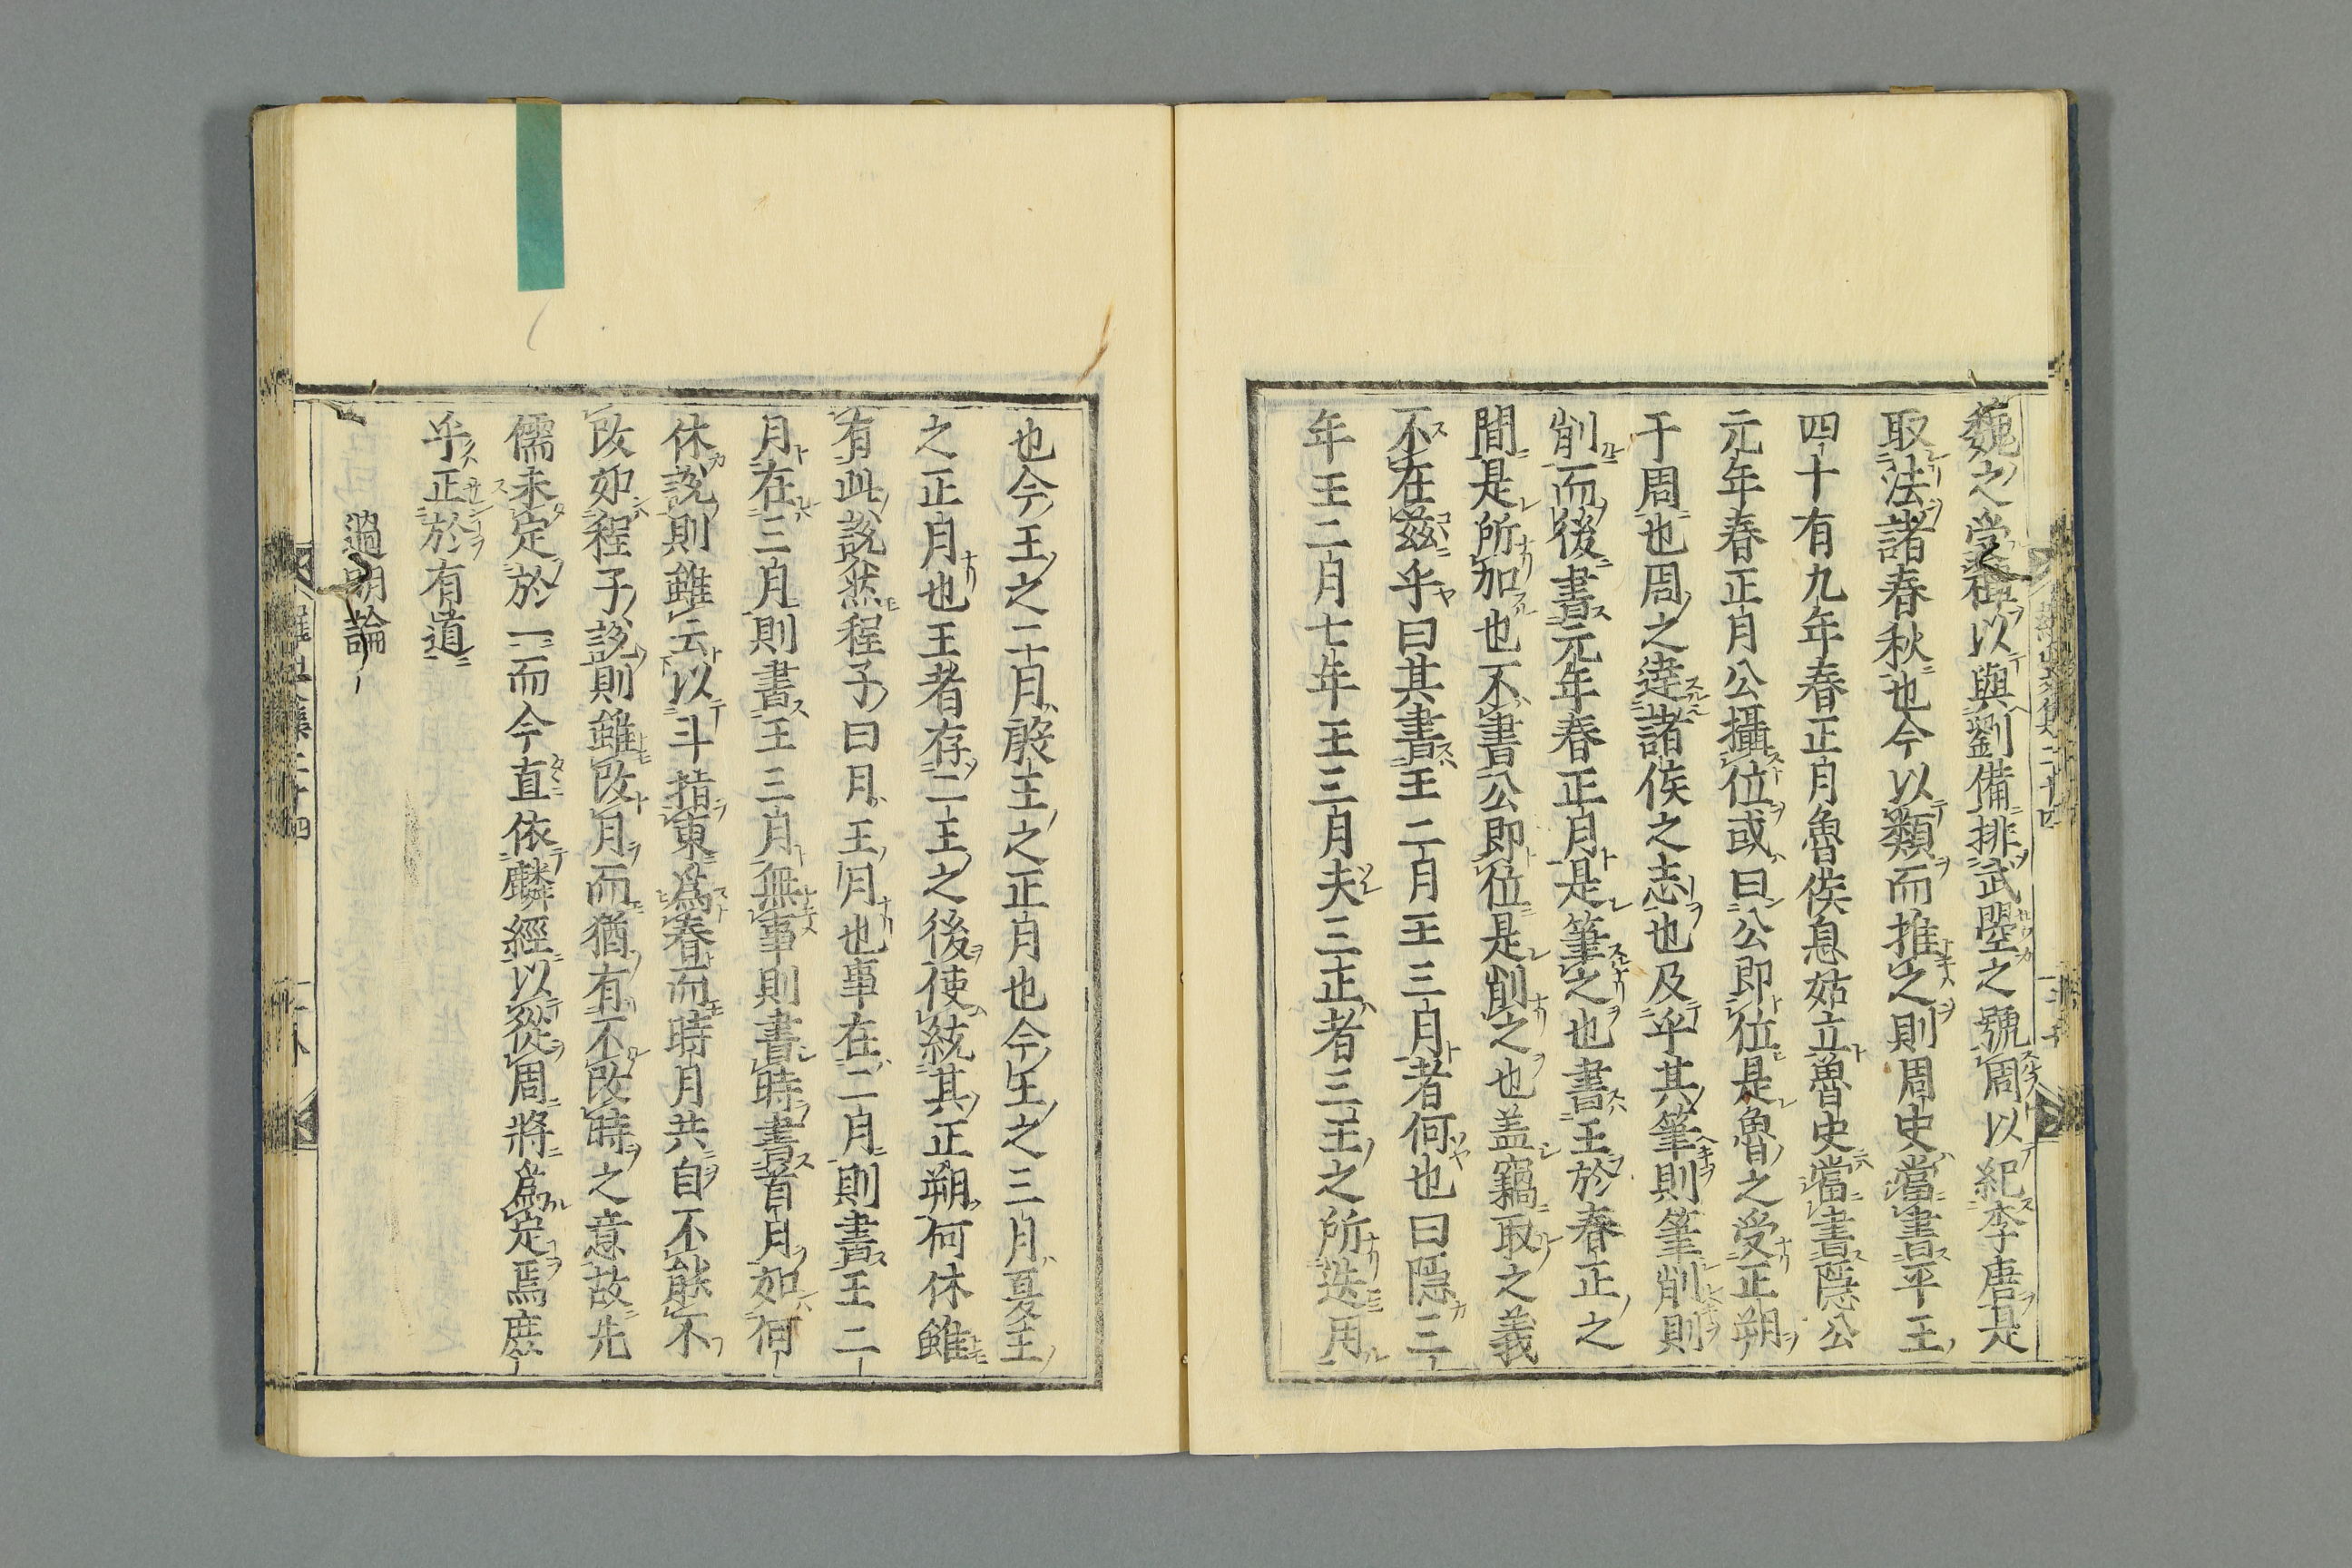 魏之受禪以與劉備排武曌之號周以紀李唐是
取法諸春秋也今以類而推之則周史當書平王
四十有九年春正月魯侯息姑立魯史當書隱公
元年春正月公攝位或曰公即位是魯之受正朔
于周也周之達諸侯之志也及乎其筆則筆削則
削而後書元年春正月是筆之也書王於春正之
間是所加也不書公即位是削之也盖竊取之義
不在茲乎曰其書王二月王三月者何也曰隱三
年王二月七年王三月夫三正者三王之所迭用
也今王之二月殷王之正月也今王之三月夏王
之正月也王者存二王之後使統其正朔何休雖
有此說然程子曰月王月也事在二月則書王二
月在三月則書王三月無事則書時書首月如何
休說則雖云以斗指東爲春而時月共自不能不
改如程子說則雖改月而猶有不改時之意故先
儒未定於一而今直依麟經以從周將爲定焉庶
乎正於有道
過明論